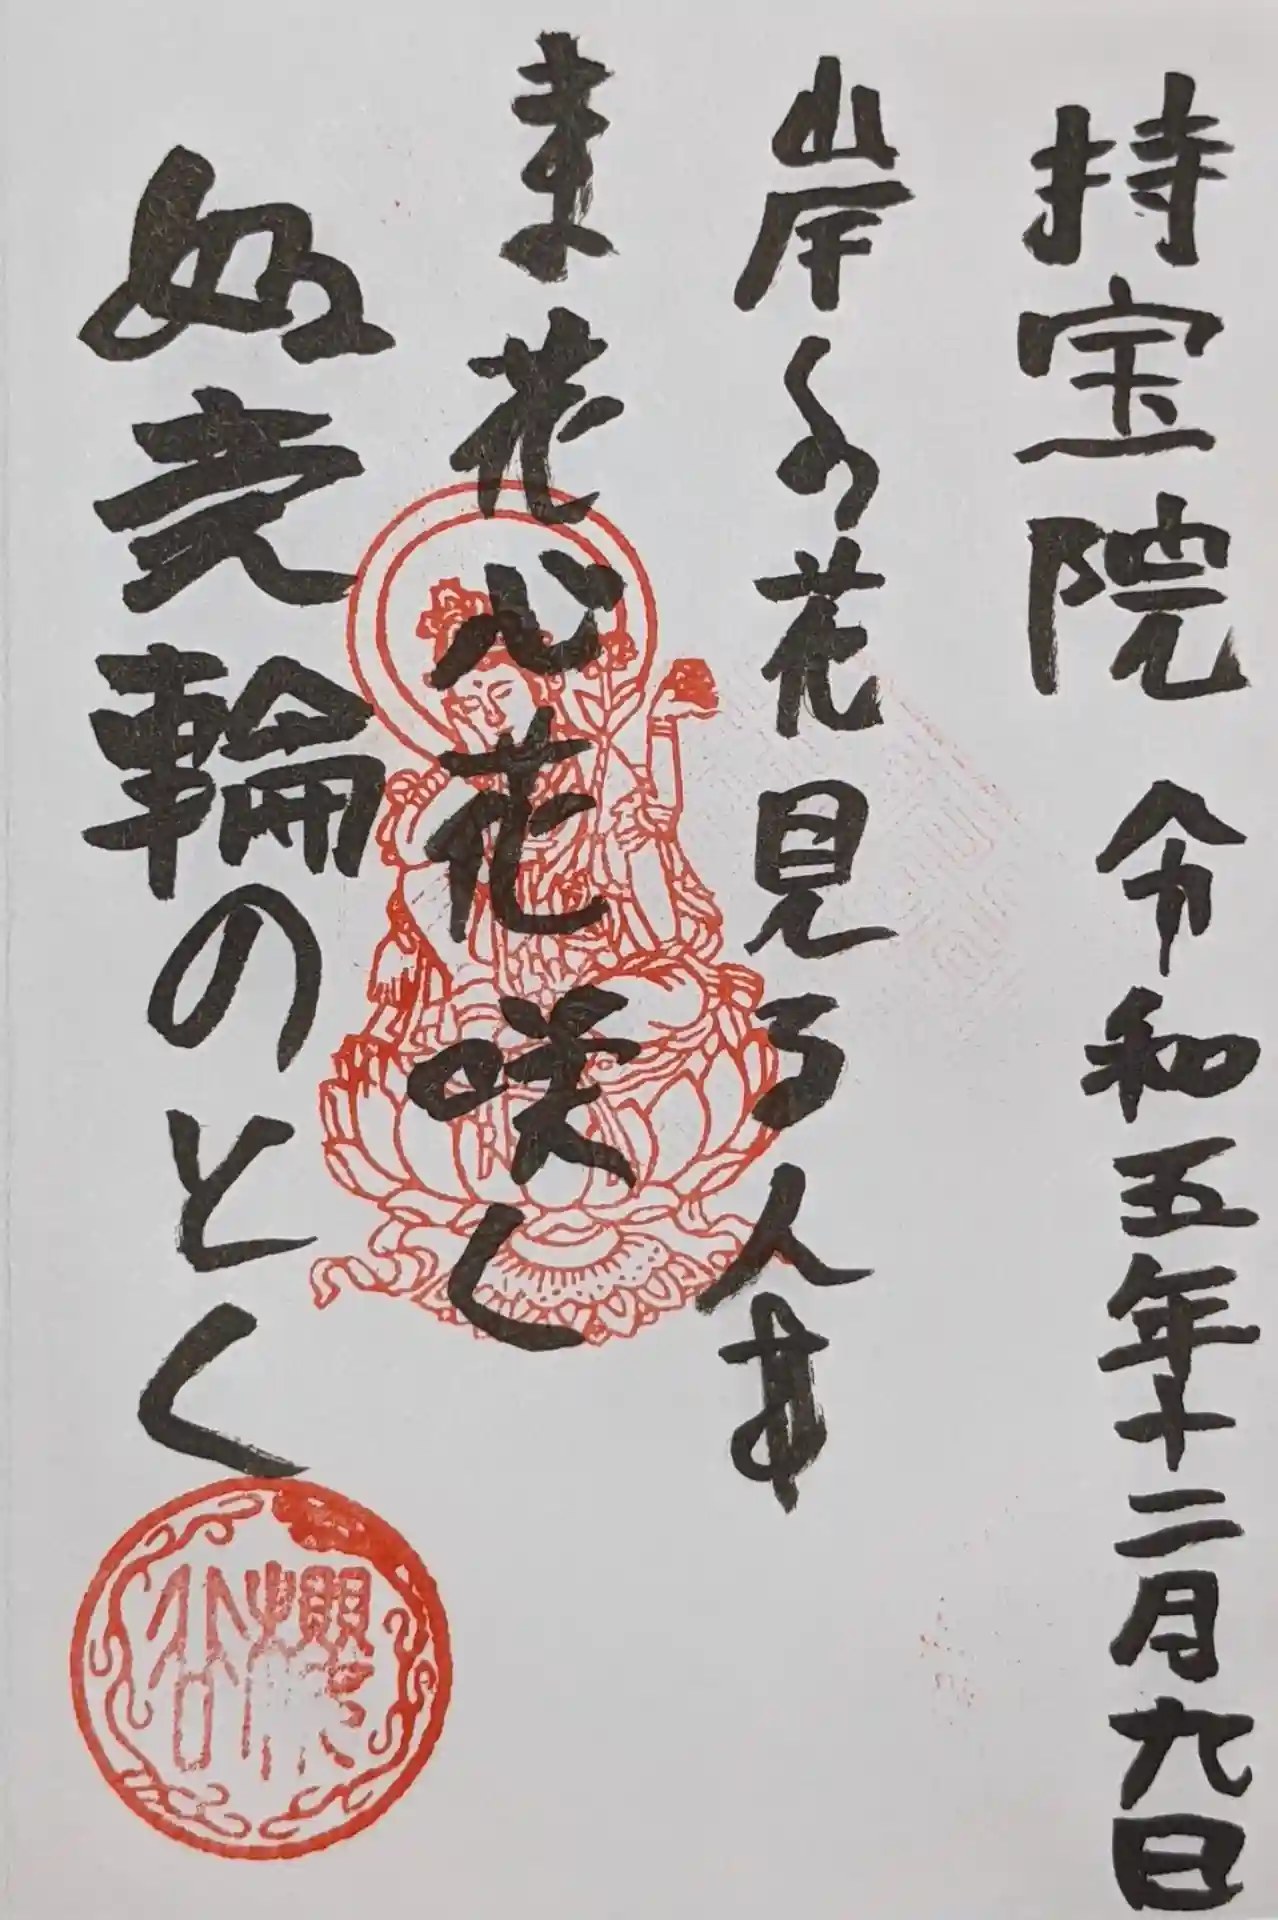 持宝院 令和五年十二月九日
山岸の花見る人も
花心花咲し
ぬ党輪のとく